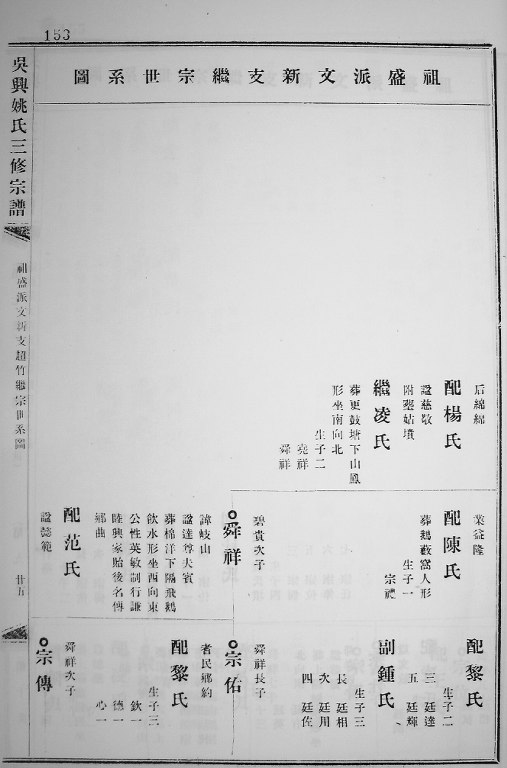 153
祖盛派文新支繼宗世系圖
后綿綿
配楊氏
諡慈敬
附塟姑墳
繼凌氏
葬更鼓塘下山鳳
形坐南向北
生子二
堯祥
舜祥
業益隆
配陳氏
葬鵝藪窩人形
生子一
宗禮
碧貴次子
舜祥
諱岐山
諡達尊大賓
葬棉洋下隔飛鵝
飲水形坐西向東
公性英敏制行謙
睦興家貽後名傳
鄉曲
配范氏
諡懿範
配黎氏
生子二
三 廷達
五 廷輝
副鍾氏
生子三
長 廷相
次 廷用
四 廷佐
舜祥長子
宗佑
者民鄉約
配黎氏
生子三
欽一
德一
心一
舜祥次子
宗傳
吳興姚氏三修宗譜
祖盛派文新支超竹繼宗世系圖
廿五